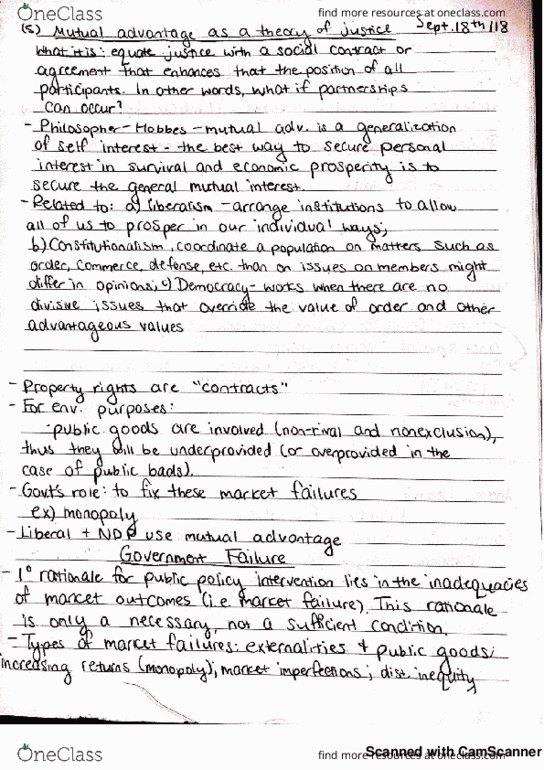 OneClass
find more resources at oneclass.com
(5) Mutual advantage as a theory of justice Sept. 18th/18
What it is: equate justice with a social contract or
agreement that enhances that the position of all
participants. In other words, what if partnerships
can occur?
- Philosopher - Hobbes - mutual adv. is a generalization
of self interest - the best way to secure personal
interest in survival and economic prosperity is to
secure the general mutual interest.
- Related to: a) liberalism - arrange institutions to allow
all of us to prosper in our individual ways;
b) Constitutionalism, coordinate a population on matters such as
order, commerce, defense, etc. than on issues on members might
differ in opinions; c) Democracy - works when there are no
divisive issues that override the value of order and other
advantageous values
- Property rights are "contracts"
- For env. purposes:
· public goods are involved (non-rival and nonexclusion),
thus they will be underprovided (or overprovided in the
case of public bads).
- Govt's role: to fix these market failures
ex) monopoly
- Liberal + NDP use mutual advantage
Government Failure
- 1° rationale for public policy intervention lies in the inadequacies
of market outcomes (i.e. market failure). This rationale
is only a necessary, not a sufficient condition.
- Types of market failures: externalities + public goods;
increasing returns (monopoly); market imperfections; dist. inequity
OneClass
find more resources at oneclass.com
Scanned with CamScanner